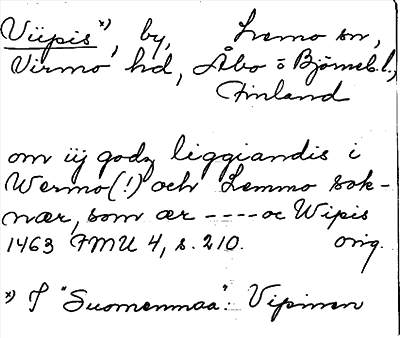 Viipis x), by, Lemo sn,
Virmo hd, Åbo o Björneb. l.,
Finland
om iij godz liggiandis i
Wermo (!) och Lemmo sok-
nær, som ær ---- oc Wipis
1463 FMU 4, s. 210. orig.
x) I "Suomenmaa": Vipinen